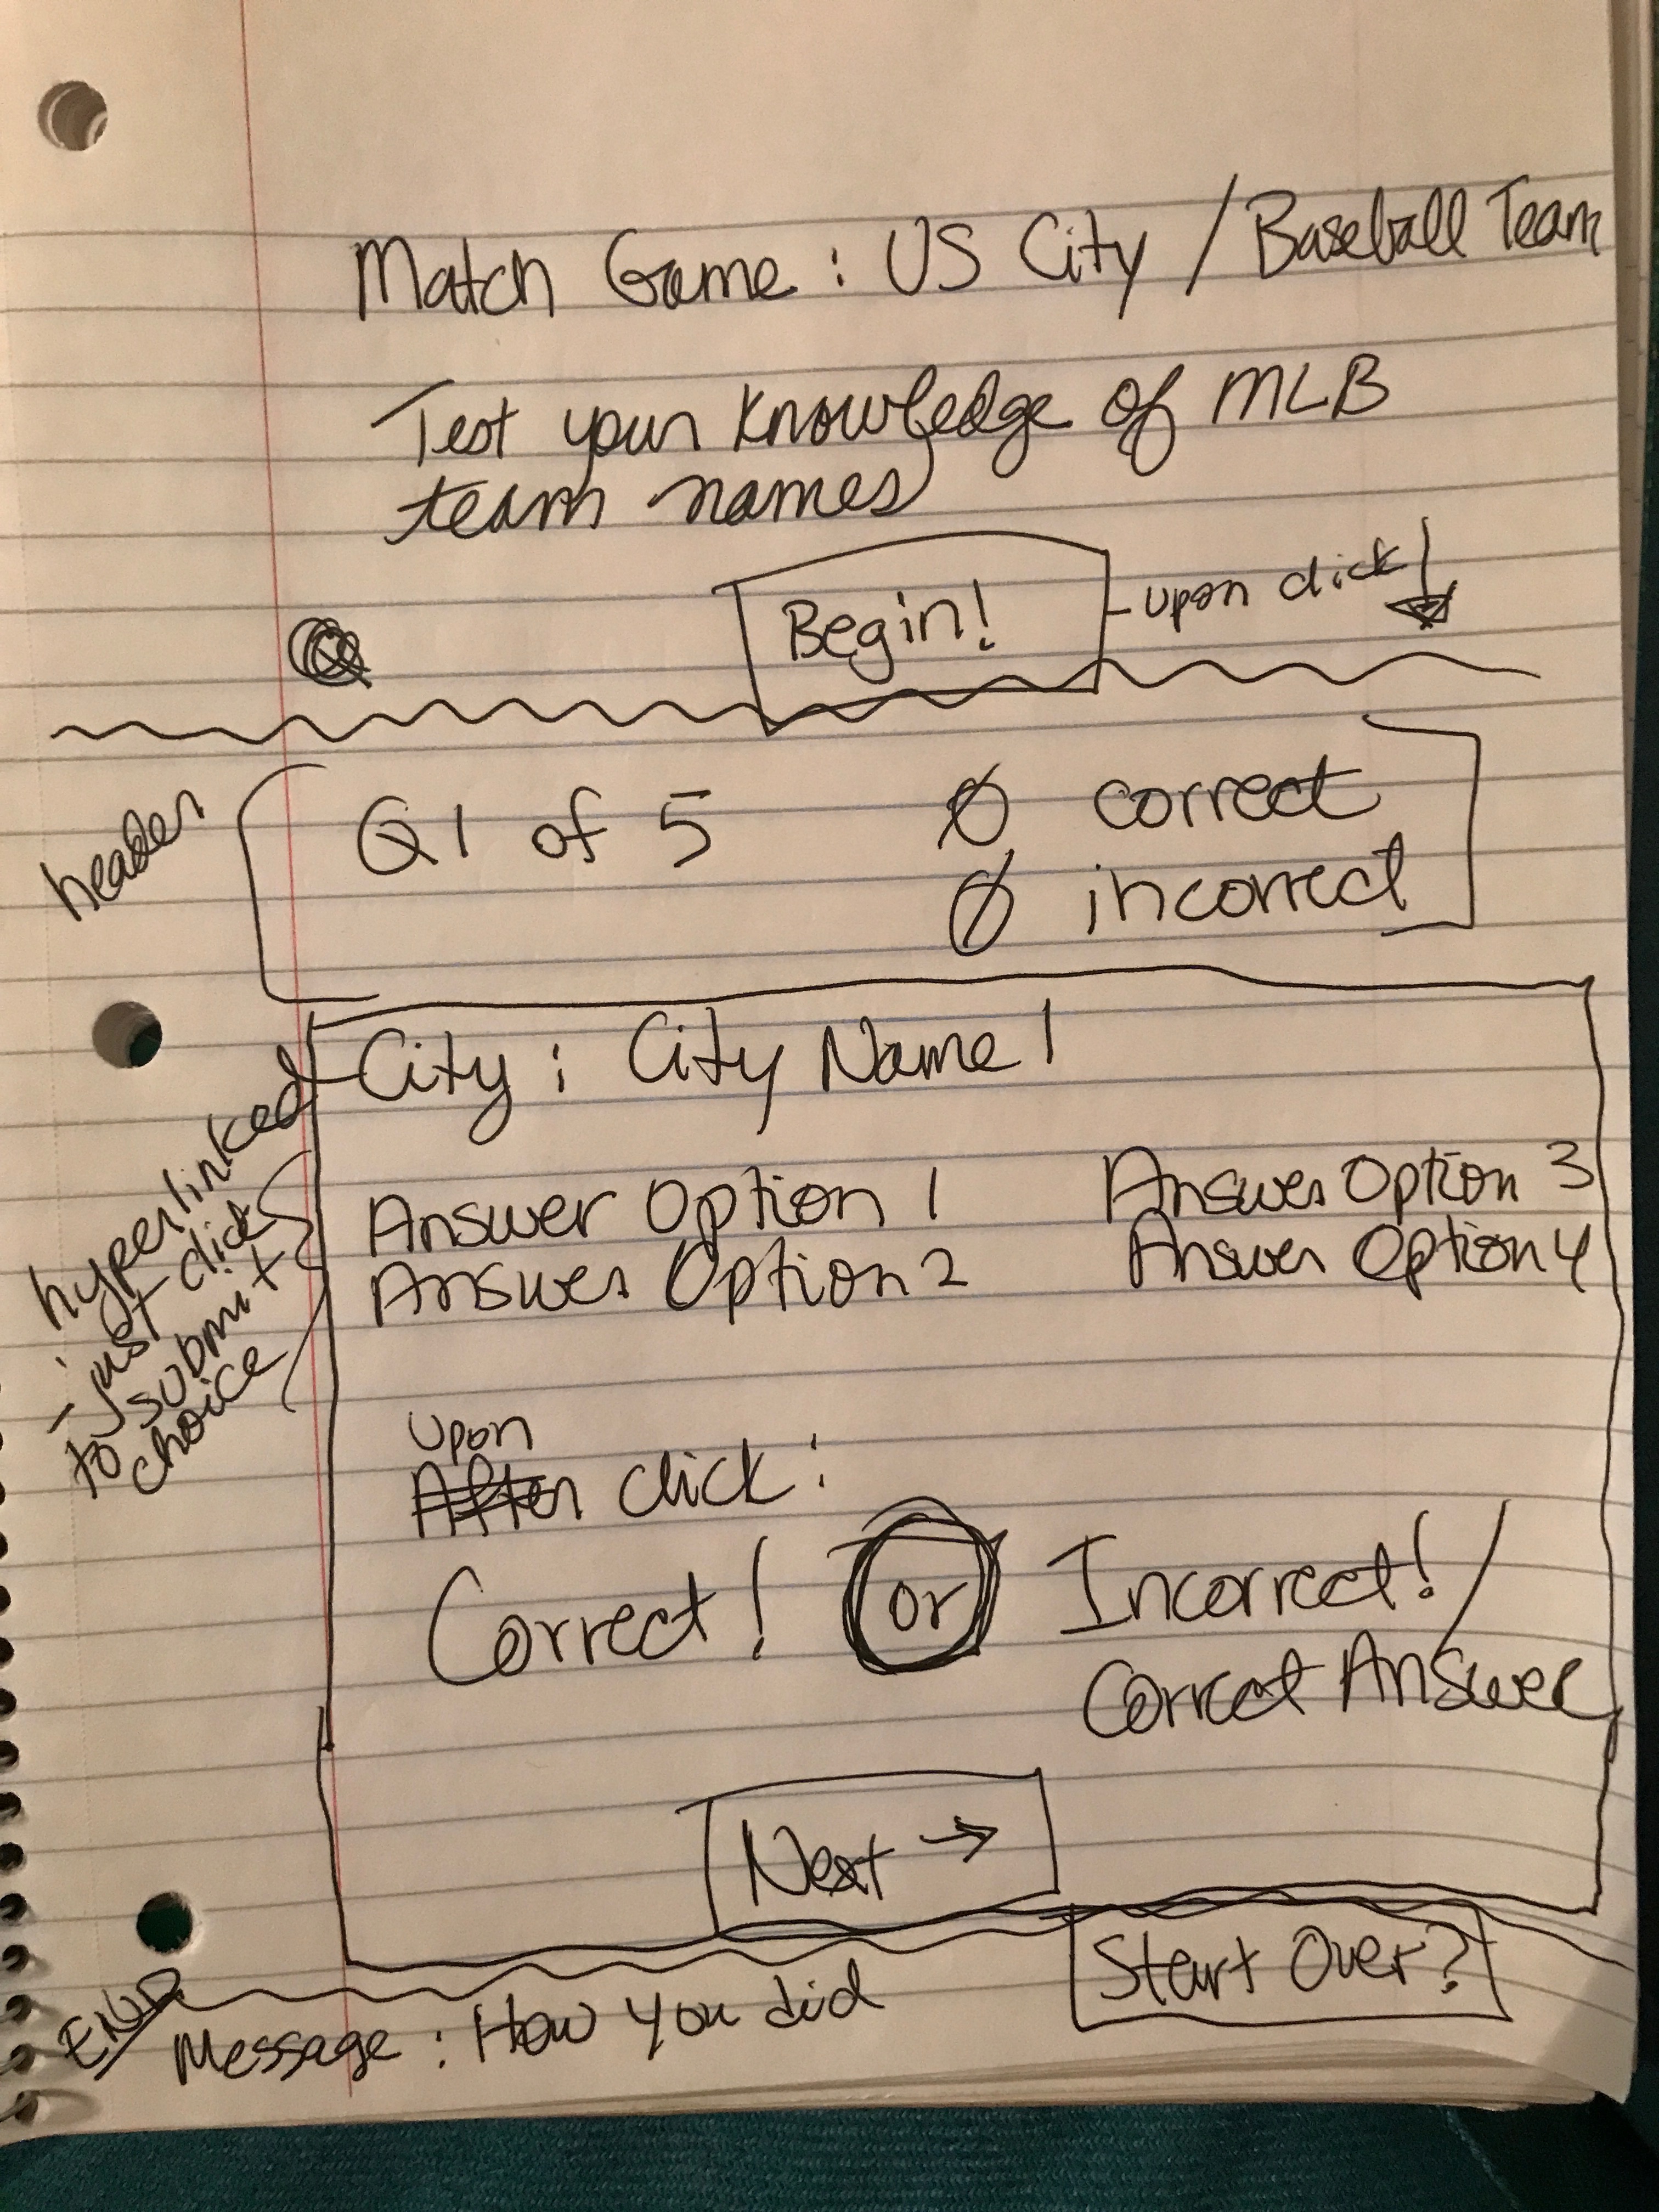 Match Game : US City / Baseball Team
Test your knowledge of MLB
team names
Begin! - upon click
header
Q1 of 5 0 correct
0 incorrect
City : City Name 1
hyperlinked
- just click
to submit
choice
Answer Option 1 Answer Option 3
Answer Option 2 Answer Option 4
Upon
After click :
Correct! or Incorrect! /
Correct Answer
Next →
END
Message : How you did Start Over?